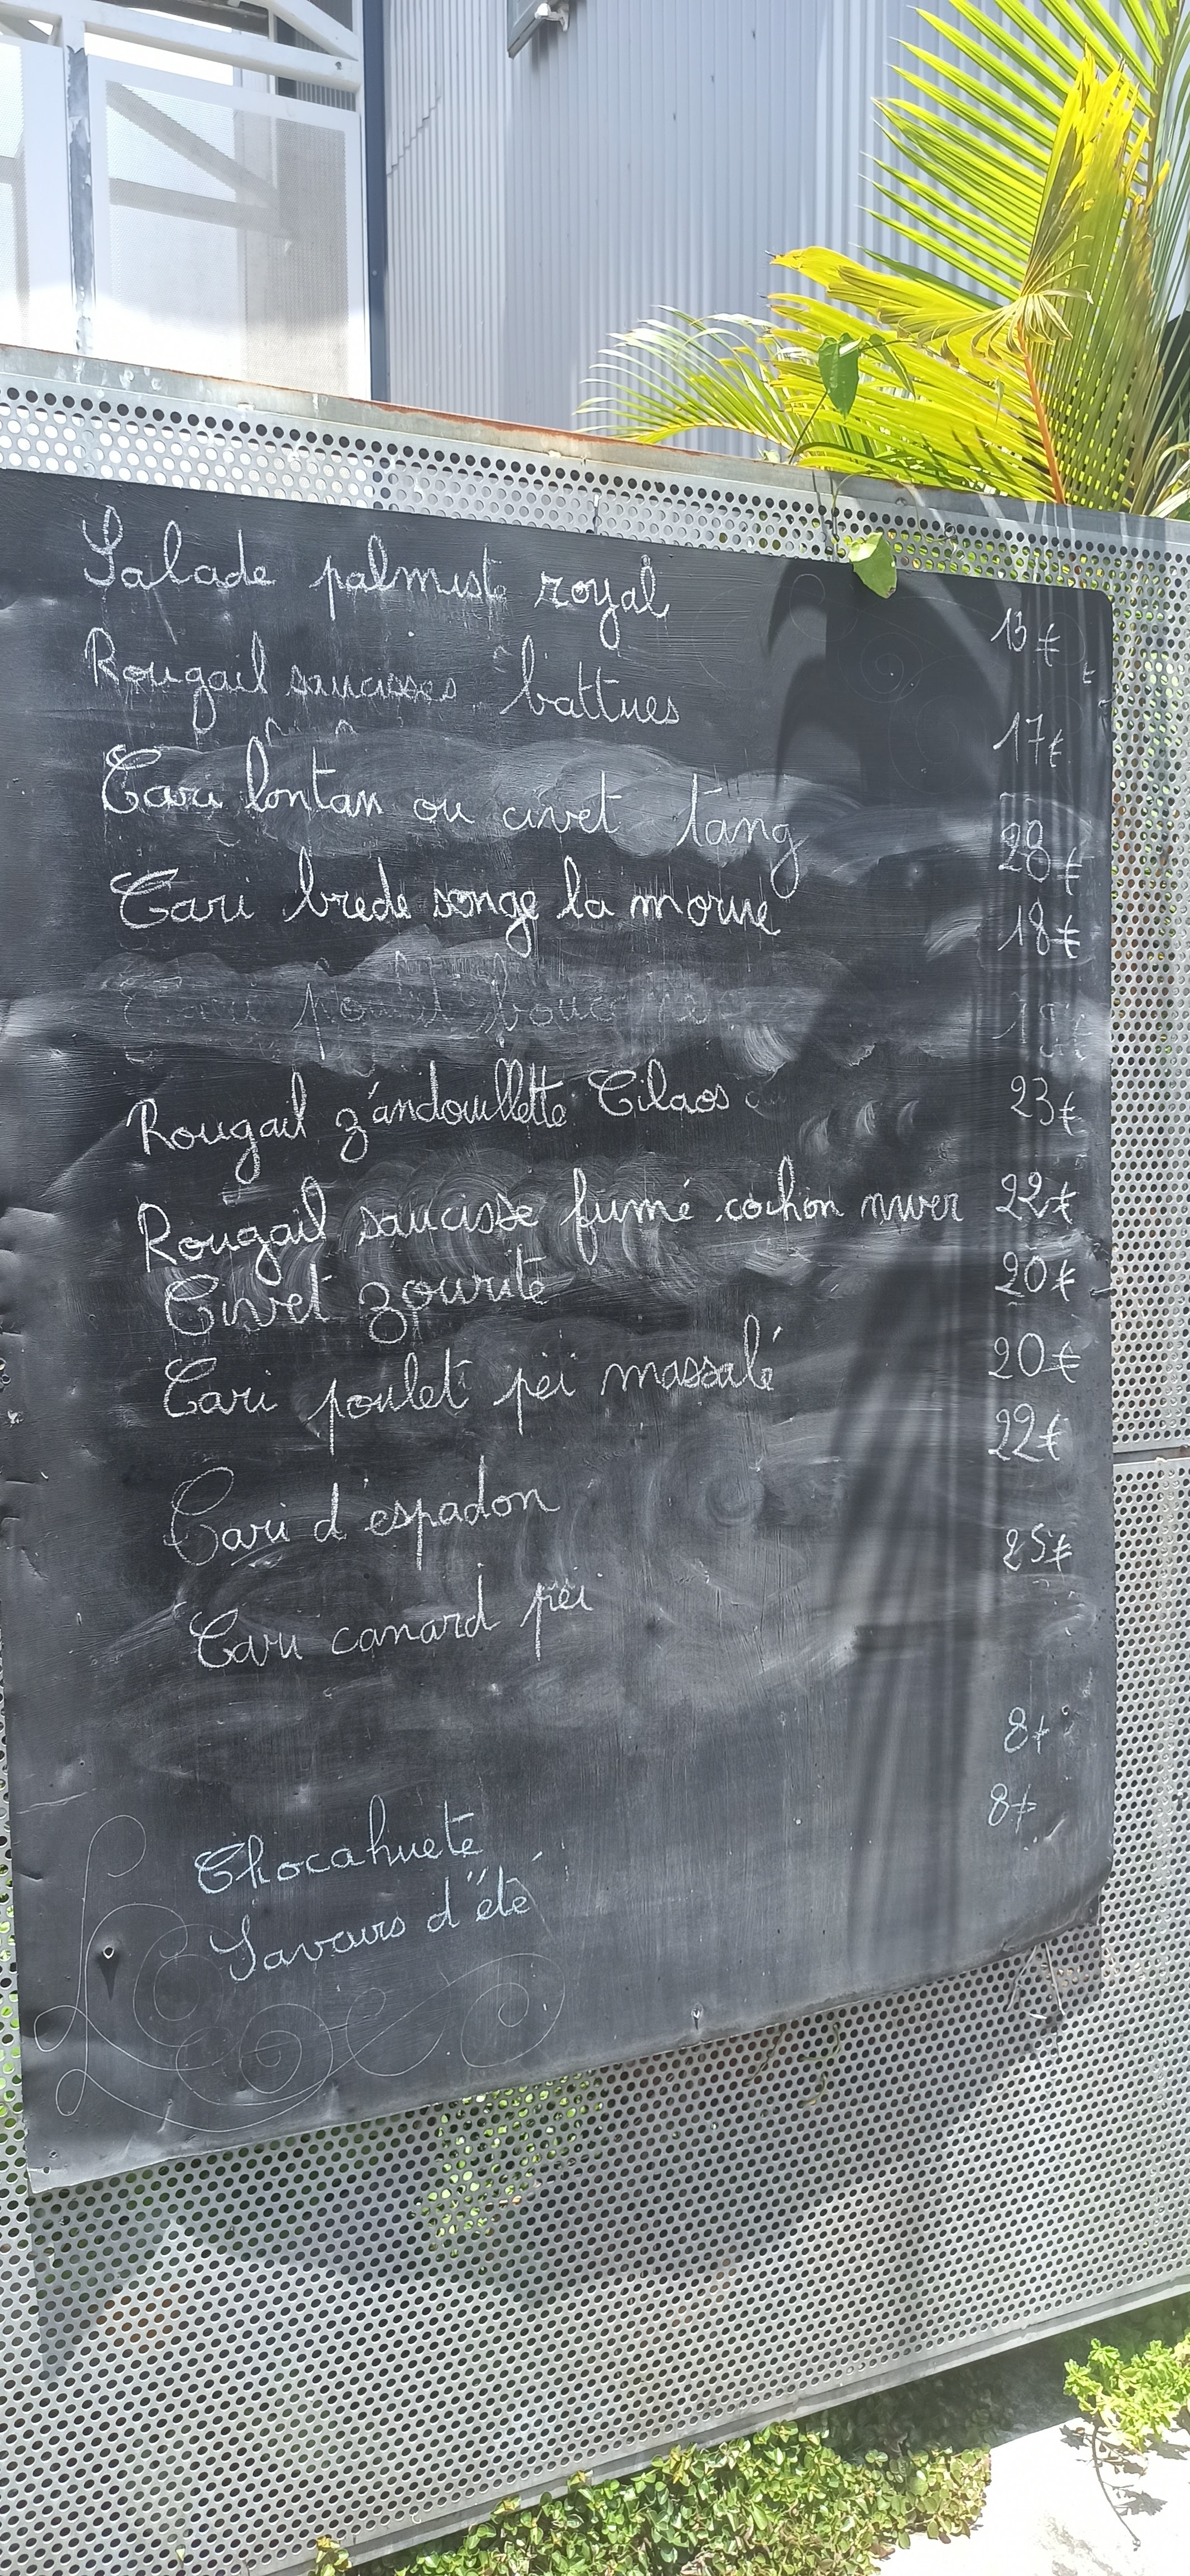 Salade palmiste royal 13€
Rougail saucisses battues 17€
Cari lontan ou civet tang 28€
Cari brede songe la morue 18€
Rougail z'andouillette Cilaos 23€
Rougail saucisse fumé cochon nwer 22€
Civet zourite 20€
Cari poulet péi massalé 20€
Cari d'espadon 22€
Cari canard péi 25€
Chocahuete 8€
Savours d'été 8€